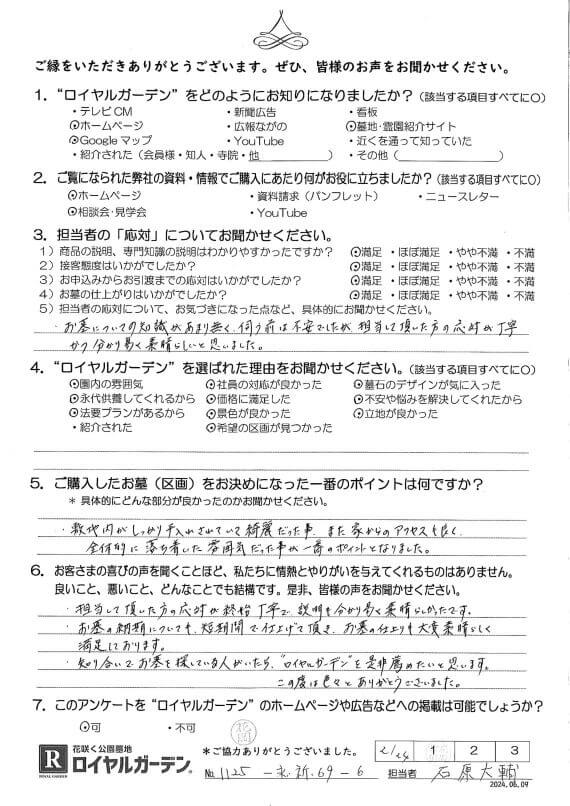 ご縁をいただきありがとうございます。ぜひ、皆様のお声をお聞かせください。
1. “ロイヤルガーデン”をどのようにお知りになりましたか？(該当する項目すべてに○)
・テレビCM ・新聞広告 ・看板
⊙ホームページ ・広報ながの ⊙墓地・霊園紹介サイト
⊙Googleマップ ・YouTube ・近くを通って知っていた
・紹介された（会員様・知人・寺院・他 ） ・その他（ ）
2. ご覧になられた弊社の資料・情報でご購入にあたり何がお役に立ちましたか？(該当する項目すべてに○)
⊙ホームページ ・資料請求（パンフレット） ・ニュースレター
⊙相談会・見学会 ・YouTube
3. 担当者の「応対」についてお聞かせください。
1）商品の説明、専門知識の説明はわかりやすかったですか？ ⊙満足 ・ほぼ満足 ・やや不満 ・不満
2）接客態度はいかがでしたか？ ⊙満足 ・ほぼ満足 ・やや不満 ・不満
3）お申込みからお引渡までの応対はいかがでしたか？ ⊙満足 ・ほぼ満足 ・やや不満 ・不満
4）お墓の仕上がりはいかがでしたか？ ⊙満足 ・ほぼ満足 ・やや不満 ・不満
5）担当者の応対について、お気づきになった点など、具体的にお聞かせください。
・お墓についての知識があまり無く、伺う前は不安でしたが、担当して頂いた方の応対が丁寧
かつ分かり易く素晴らしいと思いました。
4. “ロイヤルガーデン”を選ばれた理由をお聞かせください。(該当する項目すべてに○)
⊙園内の雰囲気 ⊙社員の対応が良かった ⊙墓石のデザインが気に入った
⊙永代供養してくれるから ⊙価格に満足した ⊙不安や悩みを解決してくれたから
⊙法要プランがあるから ⊙景色が良かった ⊙立地が良かった
・紹介された ⊙希望の区画が見つかった
5. ご購入したお墓（区画）をお決めになった一番のポイントは何ですか？
＊具体的にどんな部分が良かったのかお聞かせください。
・敷地内がしっかり手入れされていて綺麗だった事、また家からのアクセスも良く、
全体的に落ち着いた雰囲気だった事が一番のポイントとなりました。
6. お客さまの喜びの声を聞くことほど、私たちに情熱とやりがいを与えてくれるものはありません。
良いこと、悪いこと、どんなことでも結構です。是非、皆様の声をお聞かせください。
・担当して頂いた方の応対が終始丁寧で、説明も分かり易く素晴らしかったです。
・お墓の納期についても、短期間で仕上げて頂き、お墓の仕上りも大変素晴らしく
満足しております。
・知り合いでお墓を探している人がいたら、“ロイヤルガーデン”を是非薦めたいと思います。
この度は色々とありがとうございました。
7. このアンケートを“ロイヤルガーデン”のホームページや広告などへの掲載は可能でしょうか？
⊙可 ・不可
R
ROYAL GARDEN
花咲く公園墓地
ロイヤルガーデン®
＊ご協力ありがとうございました。
2/24 1 2 3
No. 1125 - 永新.69 - 6 担当者 石原大輔
2024.06.09